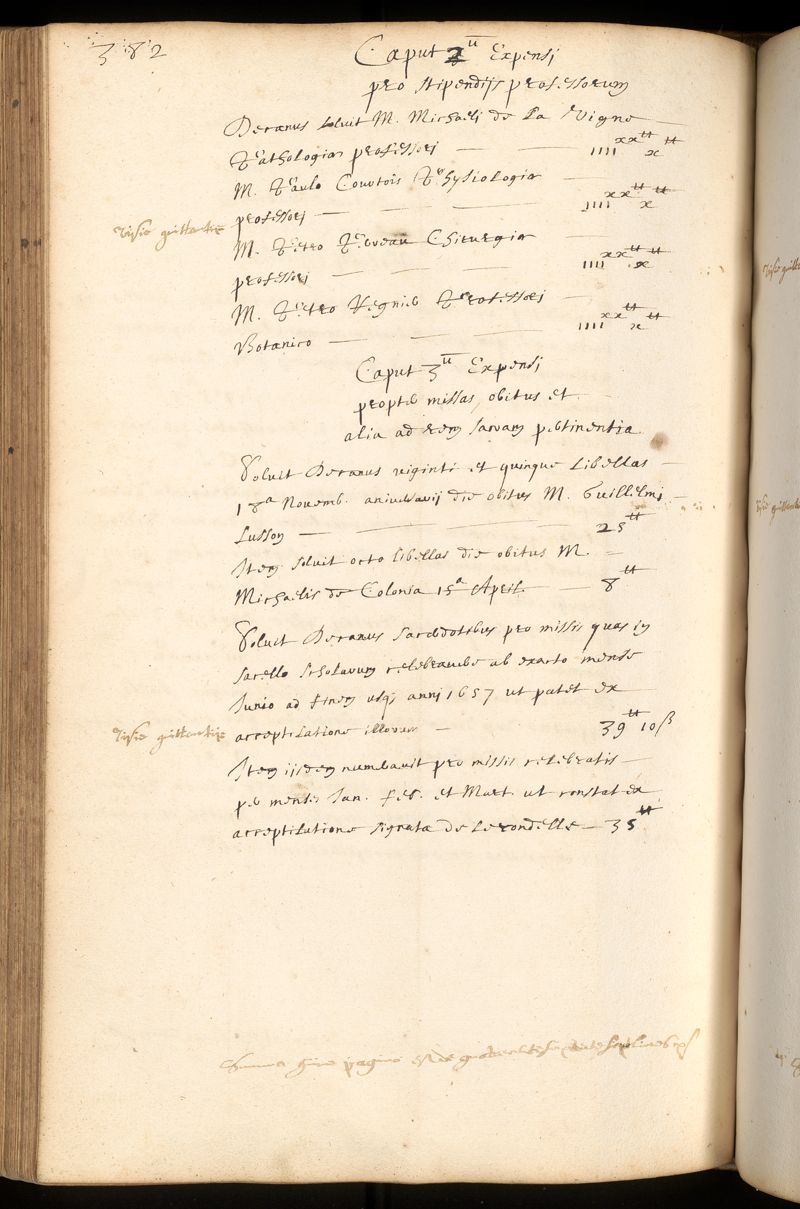 382
Caput 2ū Expensi
pro stipendijs professorum
Decanus soluit M. Michaeli de La Vigne
Pathologiae professori — — IIII xx tt x tt
M. Paulo Courtois Physiologiae
professori — IIII xx tt x tt
Visis quittantiis
M. Petro Perreau Chirurgiae
professori — IIII xx tt x tt
M. Petro Regnier Professori
Botanico — IIII xx tt x tt
Caput 3ū Expensi
propter missas, obitus et
alia ad rem sacram pertinentia
Soluit Decanus viginti et quinque Libellas
18a Novemb. aniversarij die obitus M. Guillelmi
Lusson — 25 tt
Item soluit octo libellas die obitus M.
Michaelis de Colonia 15a April. — 8 tt
Soluit Decanus sacerdotibus pro missis quas in
sacello Scholarum celebrarunt ab exacto mense
Junio ad finem usq; anni 1657 ut patet ex
Visis quittantiis
acceptilatione illorum — 39 tt 10 ß
Item iisdem numeravit pro missis celebratis
per menses Jan. Feb. et Mart. ut constat ex
acceptilatione signata de Lerondelle — 35 tt
Summa huius paginae est